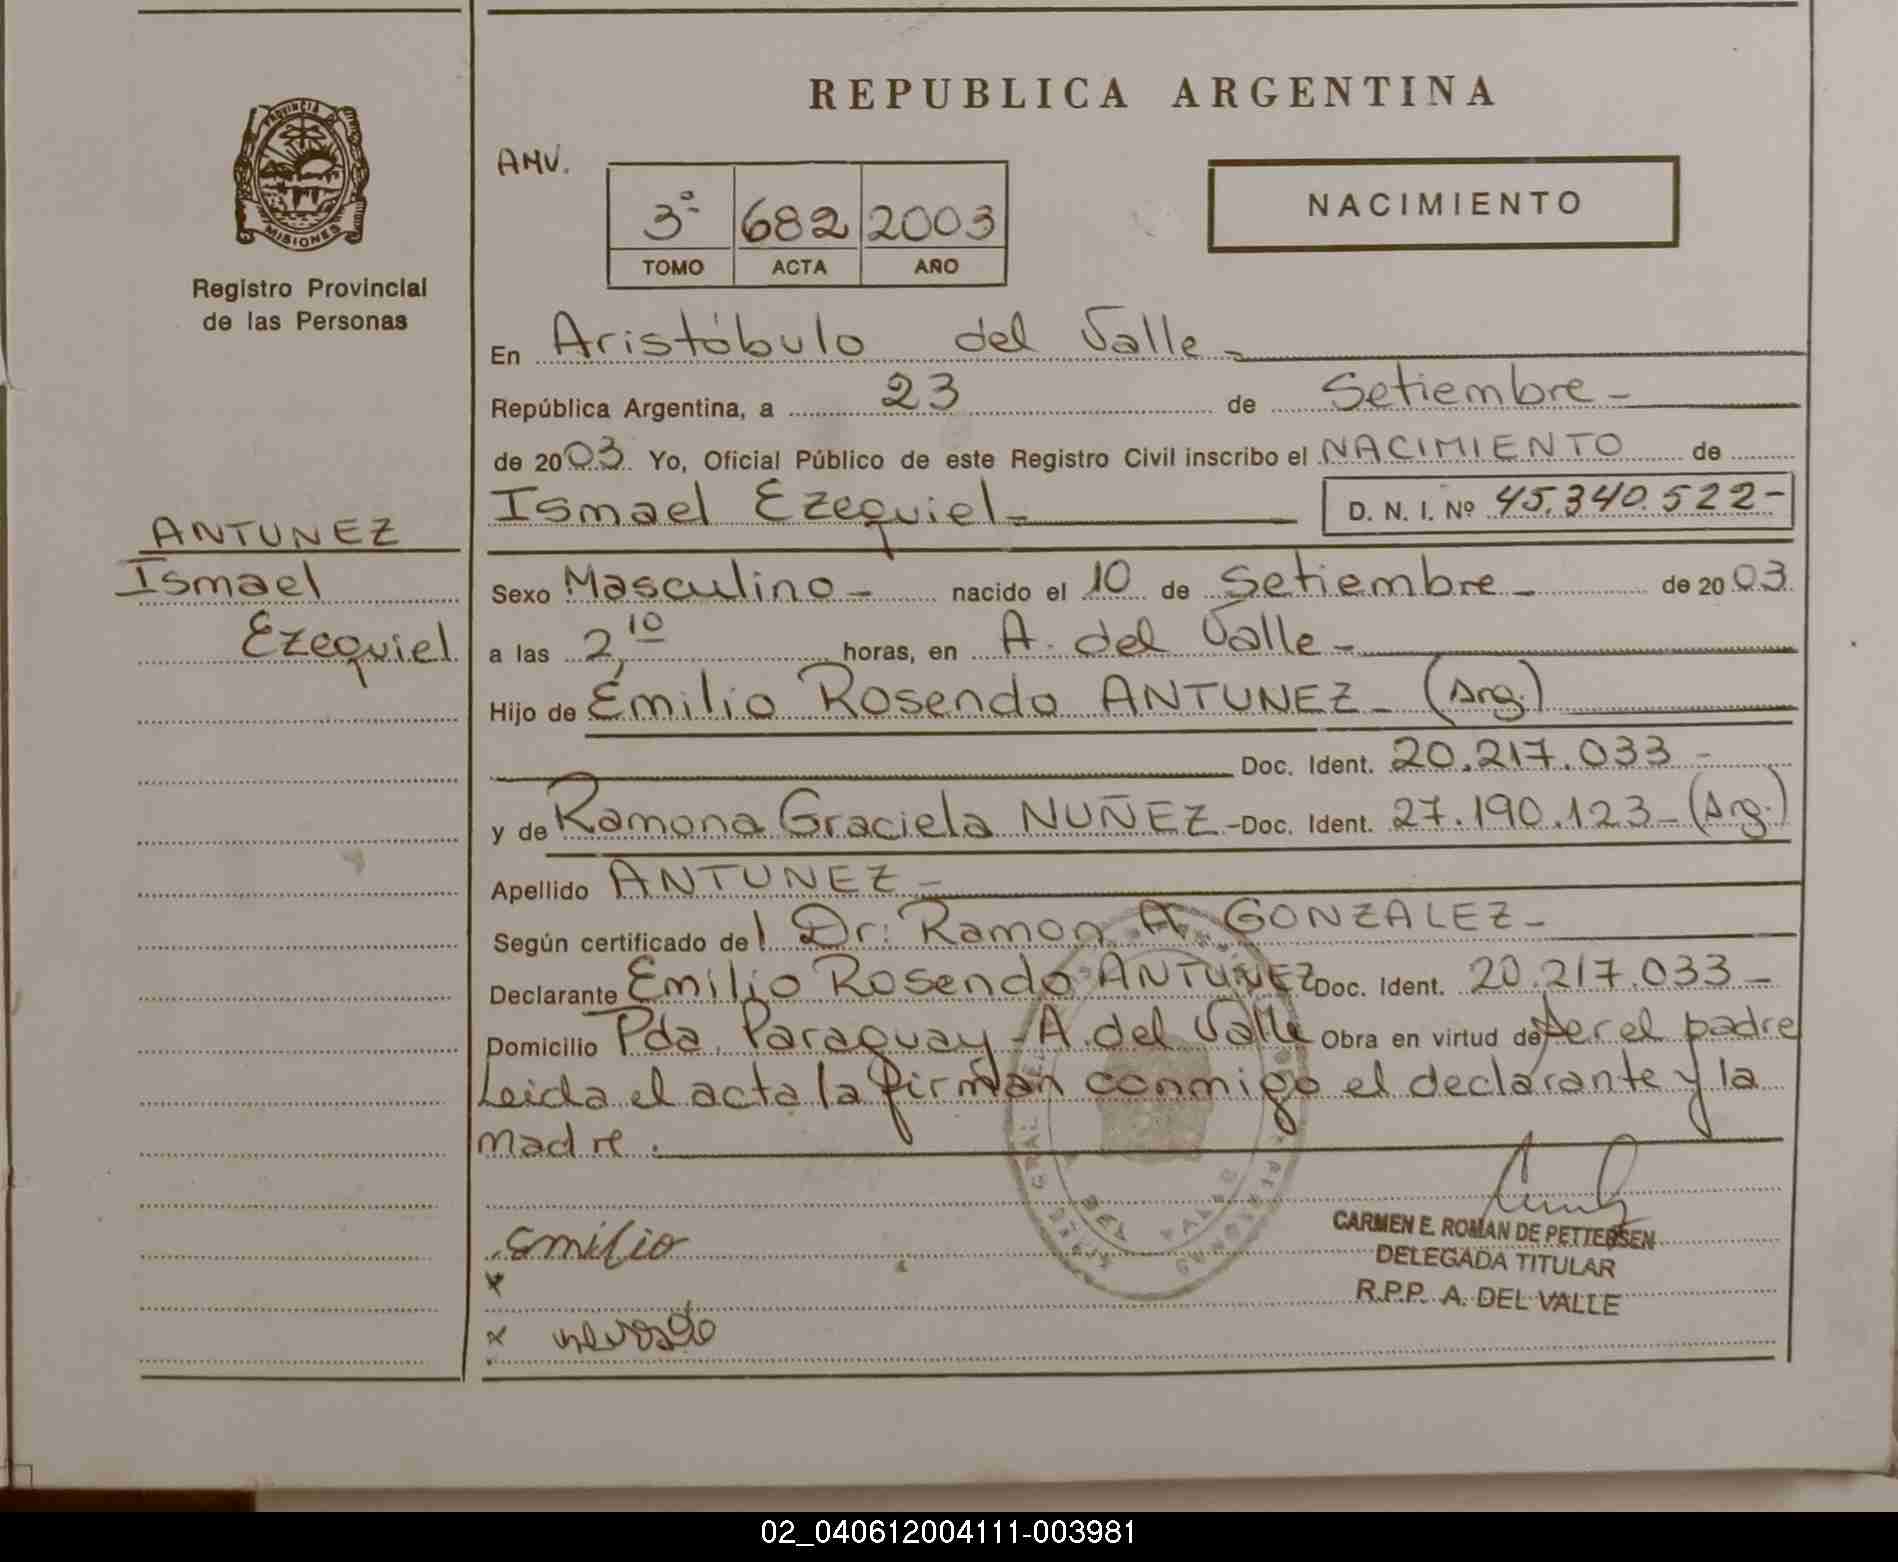 REPUBLICA ARGENTINA
PROVINCIA DE
MISIONES
Registro Provincial
de las Personas
AMV.
3ª 682 2003
TOMO ACTA AÑO
NACIMIENTO
En Aristóbulo del Valle -
República Argentina, a 23 de Setiembre -
de 2003. Yo, Oficial Público de este Registro Civil inscribo el NACIMIENTO de
Ismael Ezequiel - D. N. I. Nº 45.340.522-
ANTUNEZ
Ismael
Ezequiel
Sexo Masculino - nacido el 10 de Setiembre - de 2003.
a las 2,10 horas, en A. del Valle -
Hijo de Emilio Rosendo ANTUNEZ - (Arg.)
Doc. Ident. 20.217.033 -
y de Ramona Graciela NUÑEZ - Doc. Ident. 27.190.123 - (Arg.)
Apellido ANTUNEZ -
Según certificado del Dr. Ramon A. GONZALEZ -
Declarante Emilio Rosendo ANTUNEZ Doc. Ident. 20.217.033 -
Domicilio Pda. Paraguay - A. del Valle Obra en virtud de ser el padre
Leida el acta la firman conmigo el declarante y la
madre.
Emilio
CARMEN E. ROMAN DE PETTERSEN
DELEGADA TITULAR
R.P.P. A. DEL VALLE
x
x
02_040612004111-003981